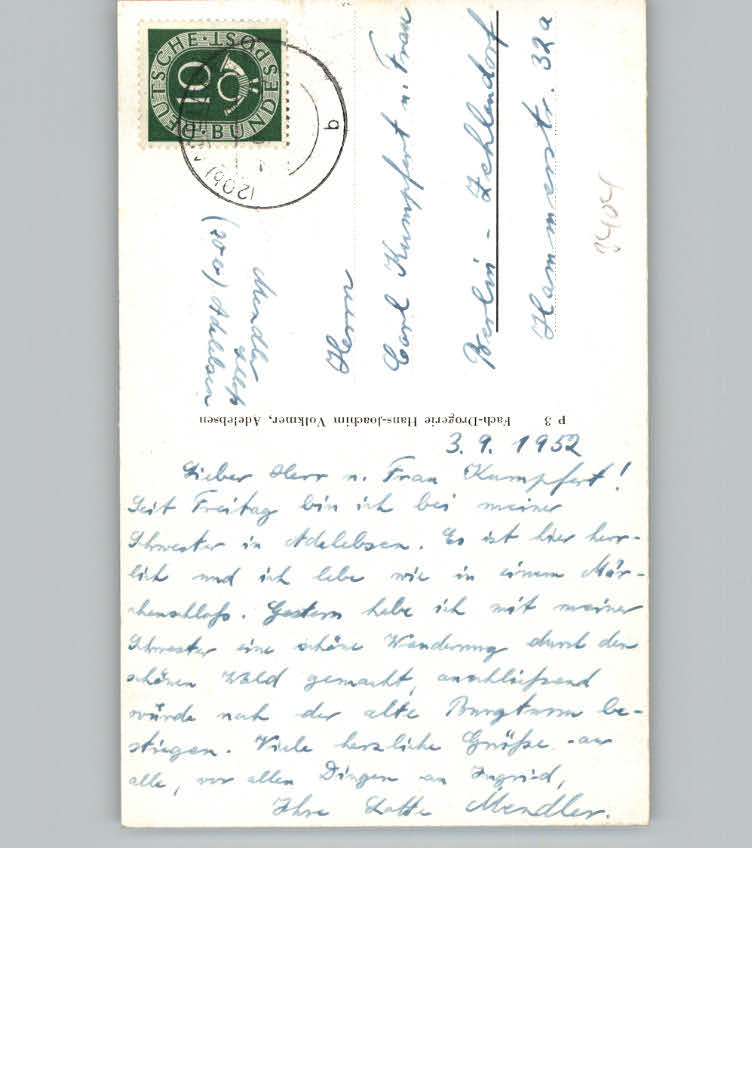 DEUTSCHE·BUNDESPOST
10
(20b)
b
Mendler
Schloß
(20b) Adelebsen
Herrn
Carl Kumpfert u. Frau
Berlin - Zehlendorf
Hammerstr. 32a
3404
P 3 Fach-Drogerie Hans-Joachim Volkmer, Adelebsen
3. 9. 1952
Lieber Herr u. Frau Kumpfert!
Seit Freitag bin ich bei meiner
Schwester in Adelebsen. Es ist hier herr-
lich und ich lebe wie in einem Mär-
chenschloß. Gestern habe ich mit meiner
Schwester eine schöne Wanderung durch den
schönen Wald gemacht, anschließend
würde noch der alte Burgturm be-
stiegen. Viele herzliche Grüße an
alle, vor allen Dingen an Ingrid,
Ihre Lotte Mendler.